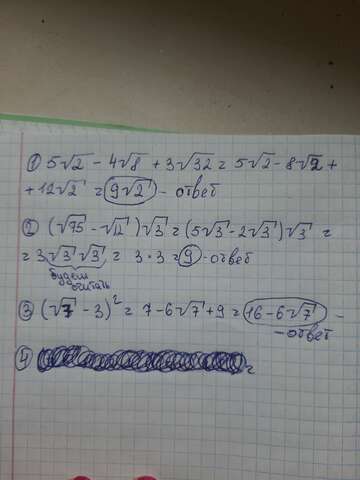 ① 5√2 - 4√8 + 3√32 = 5√2 - 8√2 +
+ 12√2 = 9√2 - ответ
② (√75 - √12)√3 = (5√3 - 2√3)√3 =
= 3√3 √3 = 3·3 = 9 - ответ
будем
считать
③ (√7 - 3)² = 7 - 6√7 + 9 = 16 - 6√7 -
- ответ
④ =